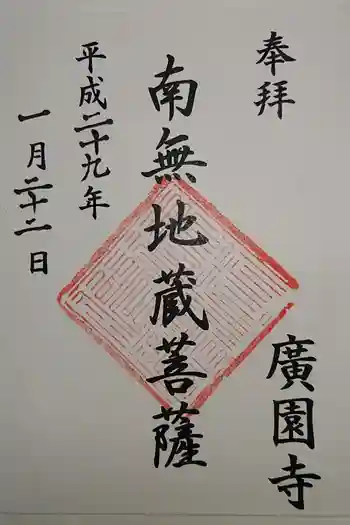 奉拝
廣園寺
南無地蔵菩薩
平成二十九年
一月二十二日